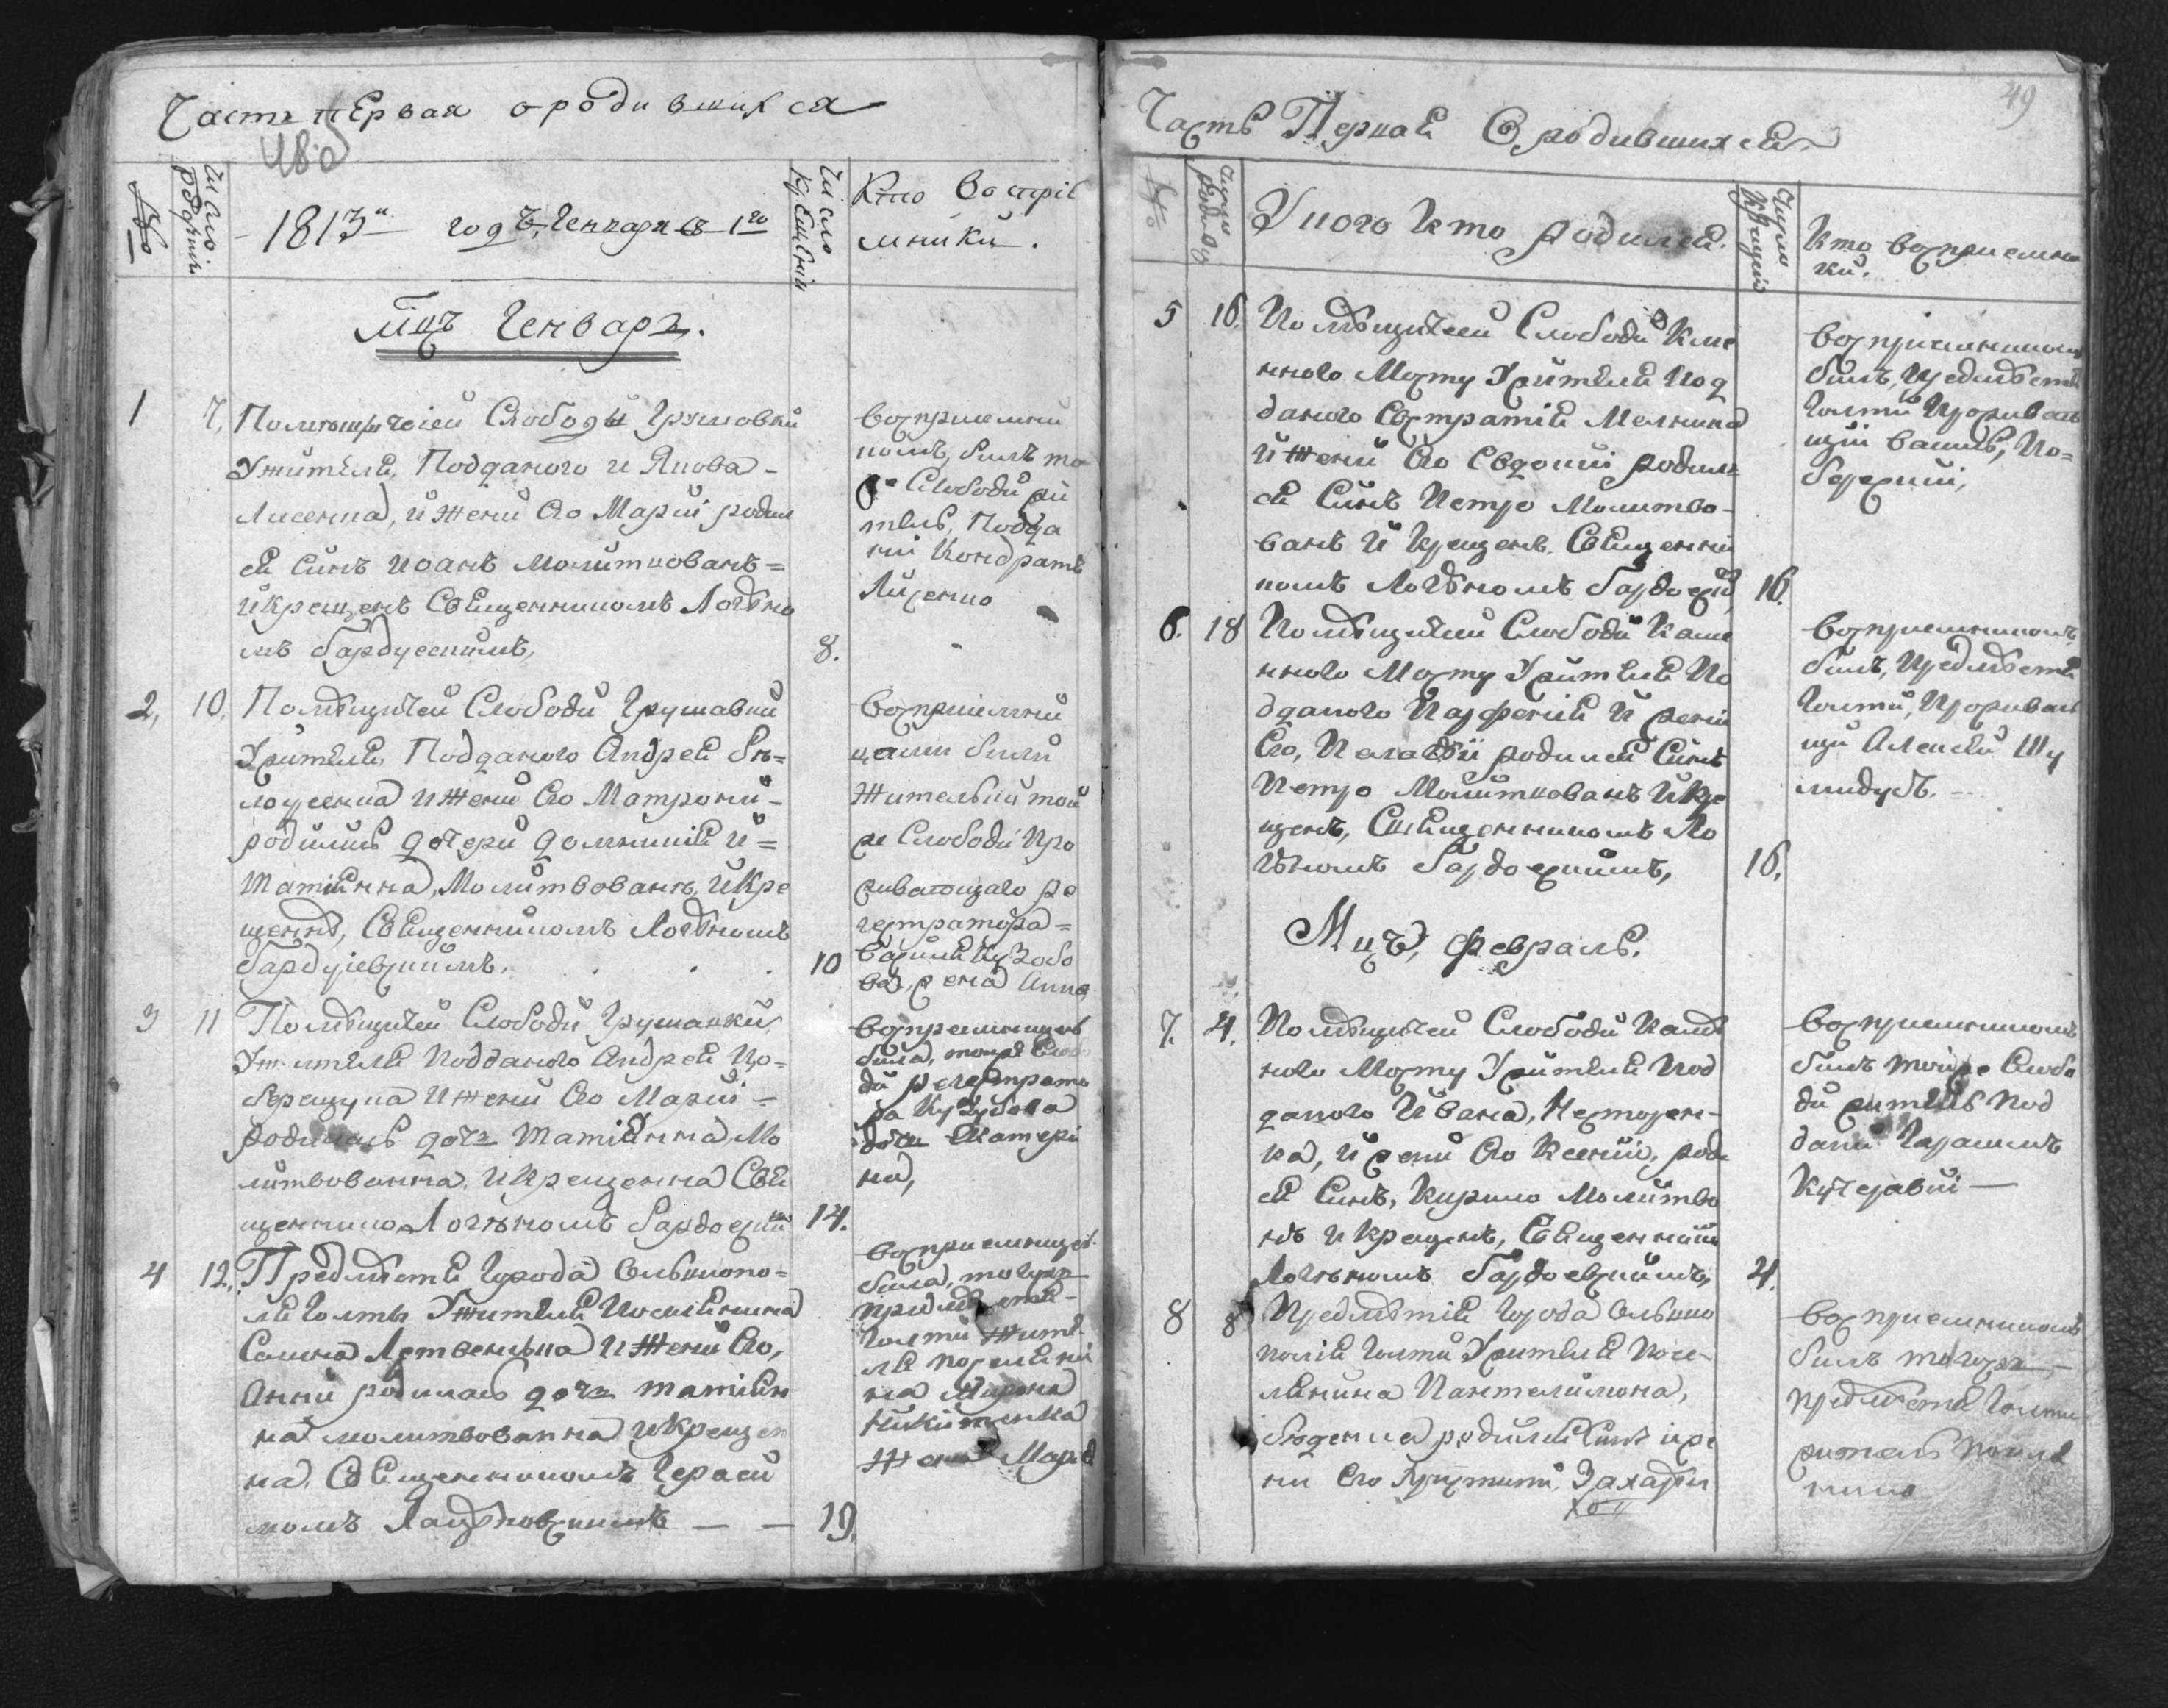 Часть первая о родившихся
48 об
№
Число рождения
1813 годъ, Генваря с 1го
Число крещения
Кто воспрiе
мники.
Мцъ Генварь.
1
7,
Помѣщичей Слободы Грушовки
Ужителя, Подданого и Якова -
Лисенка, и Жени его Марiи родил
ся синъ Иоанъ Молитвованъ =
и крещенъ Священникомъ Логѣно
мъ Бардуескимъ,
8.
воспрiемни
комъ, билъ то
же Слободи жи
тель, Подда
ний Кондратъ
Лисенко
2,
10,
Помѣщичей Слободи Грушавки
Ужителя, Подданого Андрея Бѣ=
лоусенка и Жени его Матрони -
родились дочери Домникия и =
татiанна, Молитвованъ, и Кре
щеннѣ, Священникомъ Логѣномъ
Бардуiевскимъ.
10
воспрiемни
цами били
жительки той
же Слободи Про
живающаго ре
гестратора =
жена Анна
3
11
Помѣщичей Слободи Грушавки,
Ужителя Подданого Андрея По=
бережука и Жени его Марiи -
родилась дочь татiанна, Мо
литвованна, и Крещенна Свя
щеннико Логѣномъ Бардоеским
14.
воспрiемницов
била, тоиже Слобо
ди регестрато
ра Кузубова
дочь Екатери
на,
4
12.
Предмѣстя города Ольвиопо=
ля Голты Ужителя Поселянина
Семена Литвененка и Жени его,
Анни родилась дочь татiян
на молитвованна и крещен
на, Священникомъ Гераси
момъ Лацѣновскимъ — —
19.
воспрiемницов
била, тогожъ
предмѣстя -
Голти Жите
ля поселяни
на Мирона
Никитенка
Жена Мария
49
Часть Первая О родившихся
№
Число рожде
У кого кто родился.
Число крещения
Кто воспрiемни
ки.
5
16.
Помѣщичей Слободи Каме
нного Мосту Ужителя Под
даного Евстратiя Мелника
и Жени его Евдокии родил
ся Синъ Петро Молитво-
ванъ и Крещенъ. Священни
комъ Логѣномъ Бардоеким,
16.
воспрiемникомъ
билъ, предмѣстя
Голти проживаю
щiй василь, По=
бережний,
6.
18
Помѣщичей Слободи Каме
нного Мосту Ужителя По
дданого Парфенiя и Жени
его, Пелагiи родился Синъ
Петро Молитвованъ и Кре
щенъ, Священникомъ Ло
гѣномъ Бардоескимъ,
16.
воспрiемникомъ
билъ, предмѣстя
Голти, проживаю
щи Алексей Шу
лидусъ. -
Мцъ, февраль.
7.
4.
Помѣщичей Слободи Камѣ
ного Мосту Ужителя Под
даного Ивана, Нестерен-
ка, и Жени его Ксенiи, роди
ся Синъ, Кирило Молитво
нъ и крещенъ, Священник
Логѣномъ Бардоевскимъ,
4.
воспрiемникомъ
билъ тойже Слобо
ди житель Под
даний Гарасимъ
Кучерявий —
8
8
Предмѣстiя города Ольвио
полiя Голти Ужителя Посе-
лянина Пантелимона,
родился Синъ и же
ни его Христини, Захарiя
воспрiемникомъ
билъ тогожъ -
предмѣстя Голти
житель посел
нино